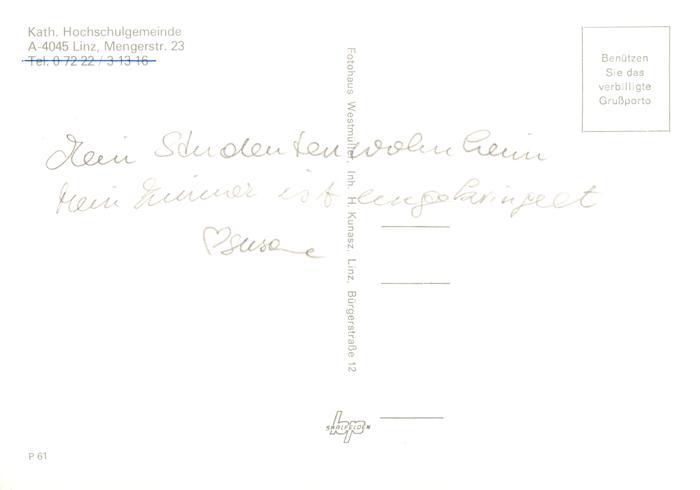 Kath. Hochschulgemeinde
A-4045 Linz, Mengerstr. 23
Tel. 0 72 22 / 3 13 16
Benützen
Sie das
verbilligte
Grußporto
Mein Studentenwohnheim
Mein Zimmer ist eingekringelt
♡Susanne
Fotohaus Westmüller, Inh. H. Kunasz, Linz, Bürgerstraße 12
SAALFELDEN
P 61